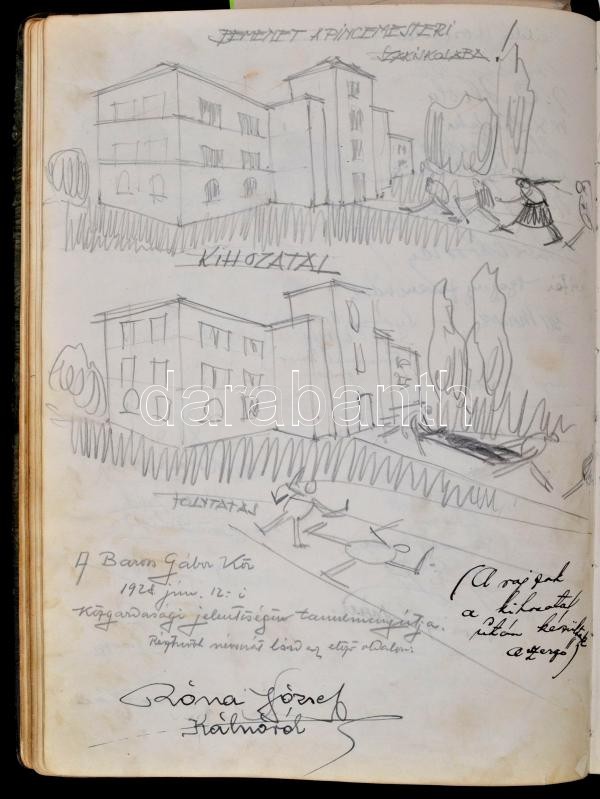 BEMENET A PINCEMESTERI
SZAKISKOLÁBA!
KIHOZATAL
darabanth
FOLYTATÁS
A Baross Gábor Kör
1928 jún. 12.-i
Közgazdasági jelentőségű tanulmányútja.
névsorát lásd az előző oldalon.
(A rajzok
a kihozatal
után készültek
a szerző)
Róna József
Kálnóról